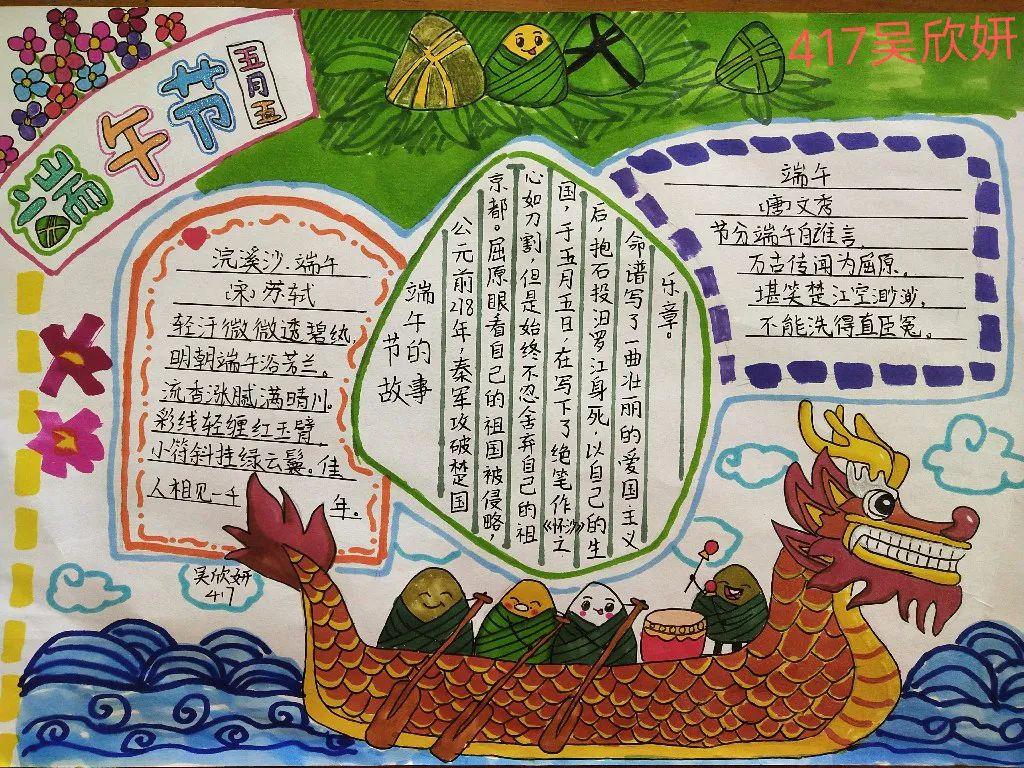 417吴欣妍
端午节
五月五
浣溪沙·端午
(宋)苏轼
轻汗微微透碧纨,
明朝端午浴芳兰。
流香涨腻满晴川。
彩线轻缠红玉臂,
小符斜挂绿云鬟。佳
人相见一千年。
端午节的故事
公元前218年,秦军攻破楚国
京都。屈原眼看自己的祖国被侵略,
心如刀割,但是始终不忍舍弃自己的祖
国,于五月五日,在写下了绝笔作《怀沙》之
后,抱石投汨罗江身死,以自己的生
命谱写了一曲壮丽的爱国主义
乐章。
端午
(唐)文秀
节分端午自谁言,
万古传闻为屈原。
堪笑楚江空渺渺,
不能洗得直臣冤。
吴欣妍
417